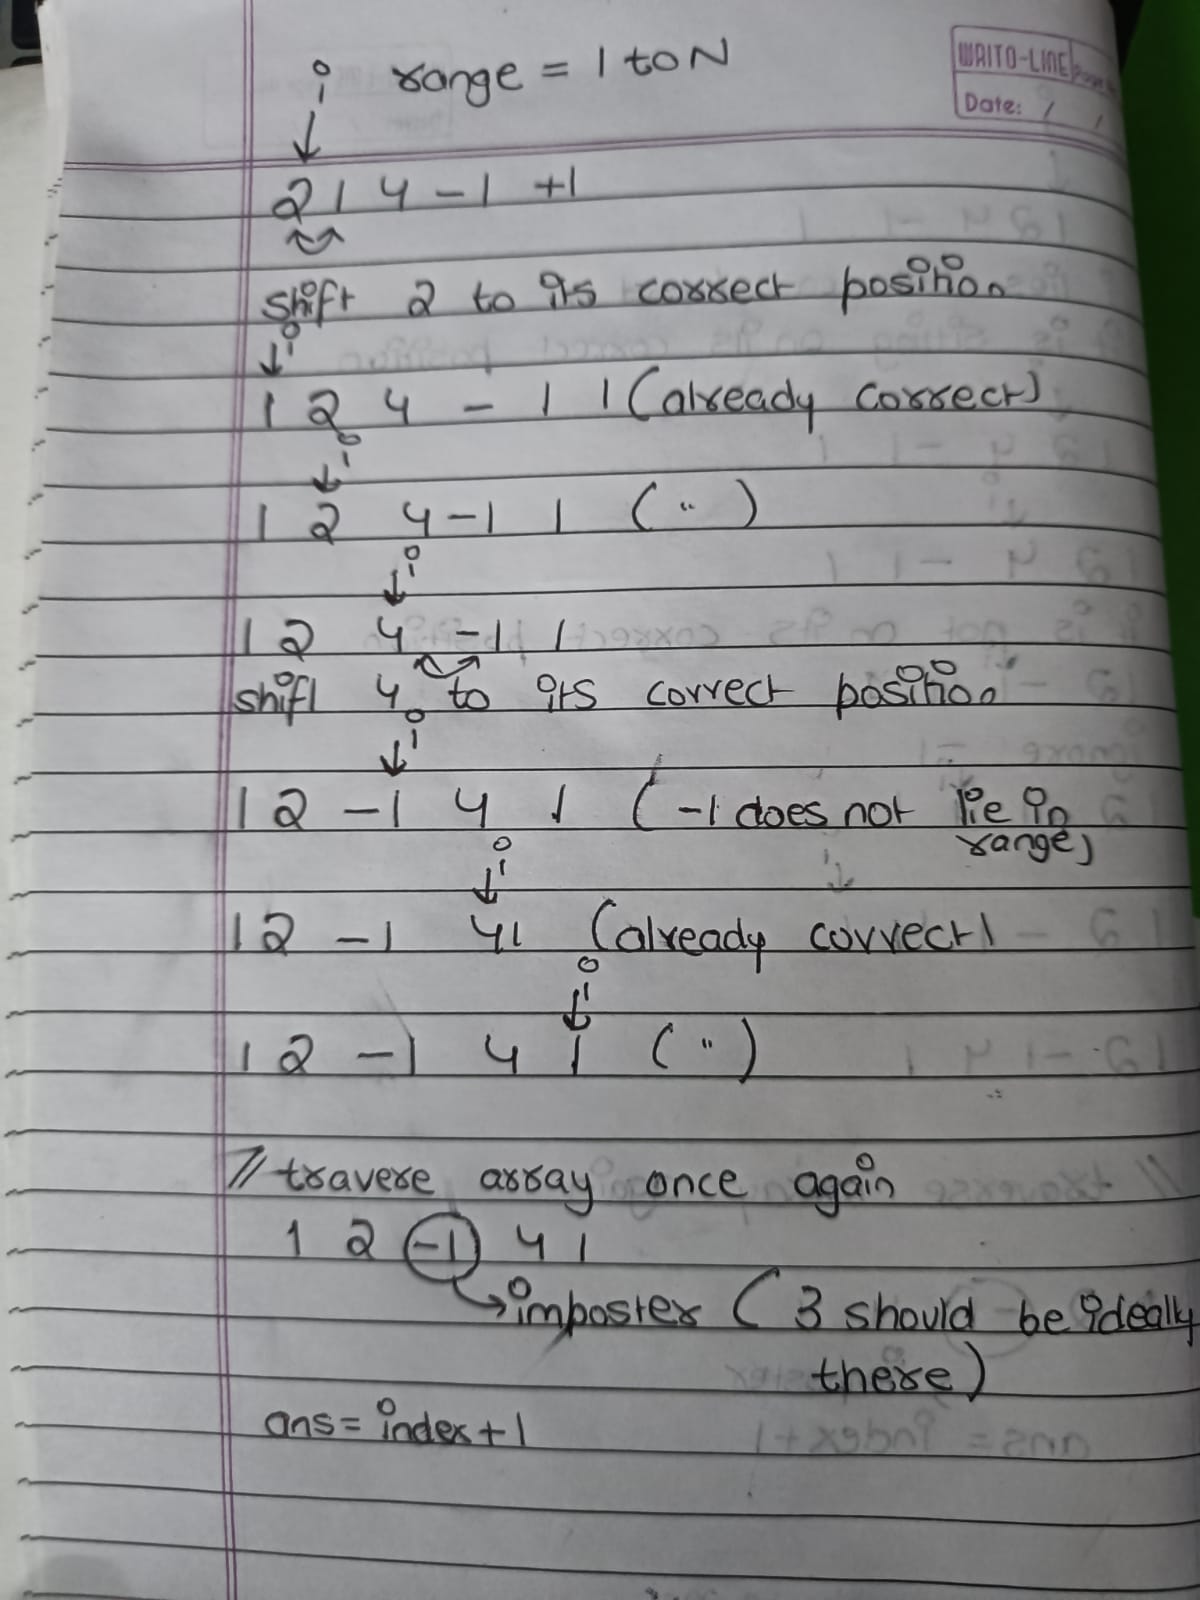 i range = 1 to N
WRITO-LINE
Date: / /
2 1 4 -1 +1
shift 2 to its correct position
i
1 2 4 -1 1 (already correct)
i
1 2 4 -1 1 ( " )
i
1 2 4 -1 1
shift 4 to its correct position
i
1 2 -1 4 1 (-1 does not lie in
range)
i
1 2 -1 4 1 (already correct)
i
1 2 -1 4 1 ( " )
// travere array once again
1 2 -1 4 1
imposter ( 3 should be ideally
there)
ans = index + 1